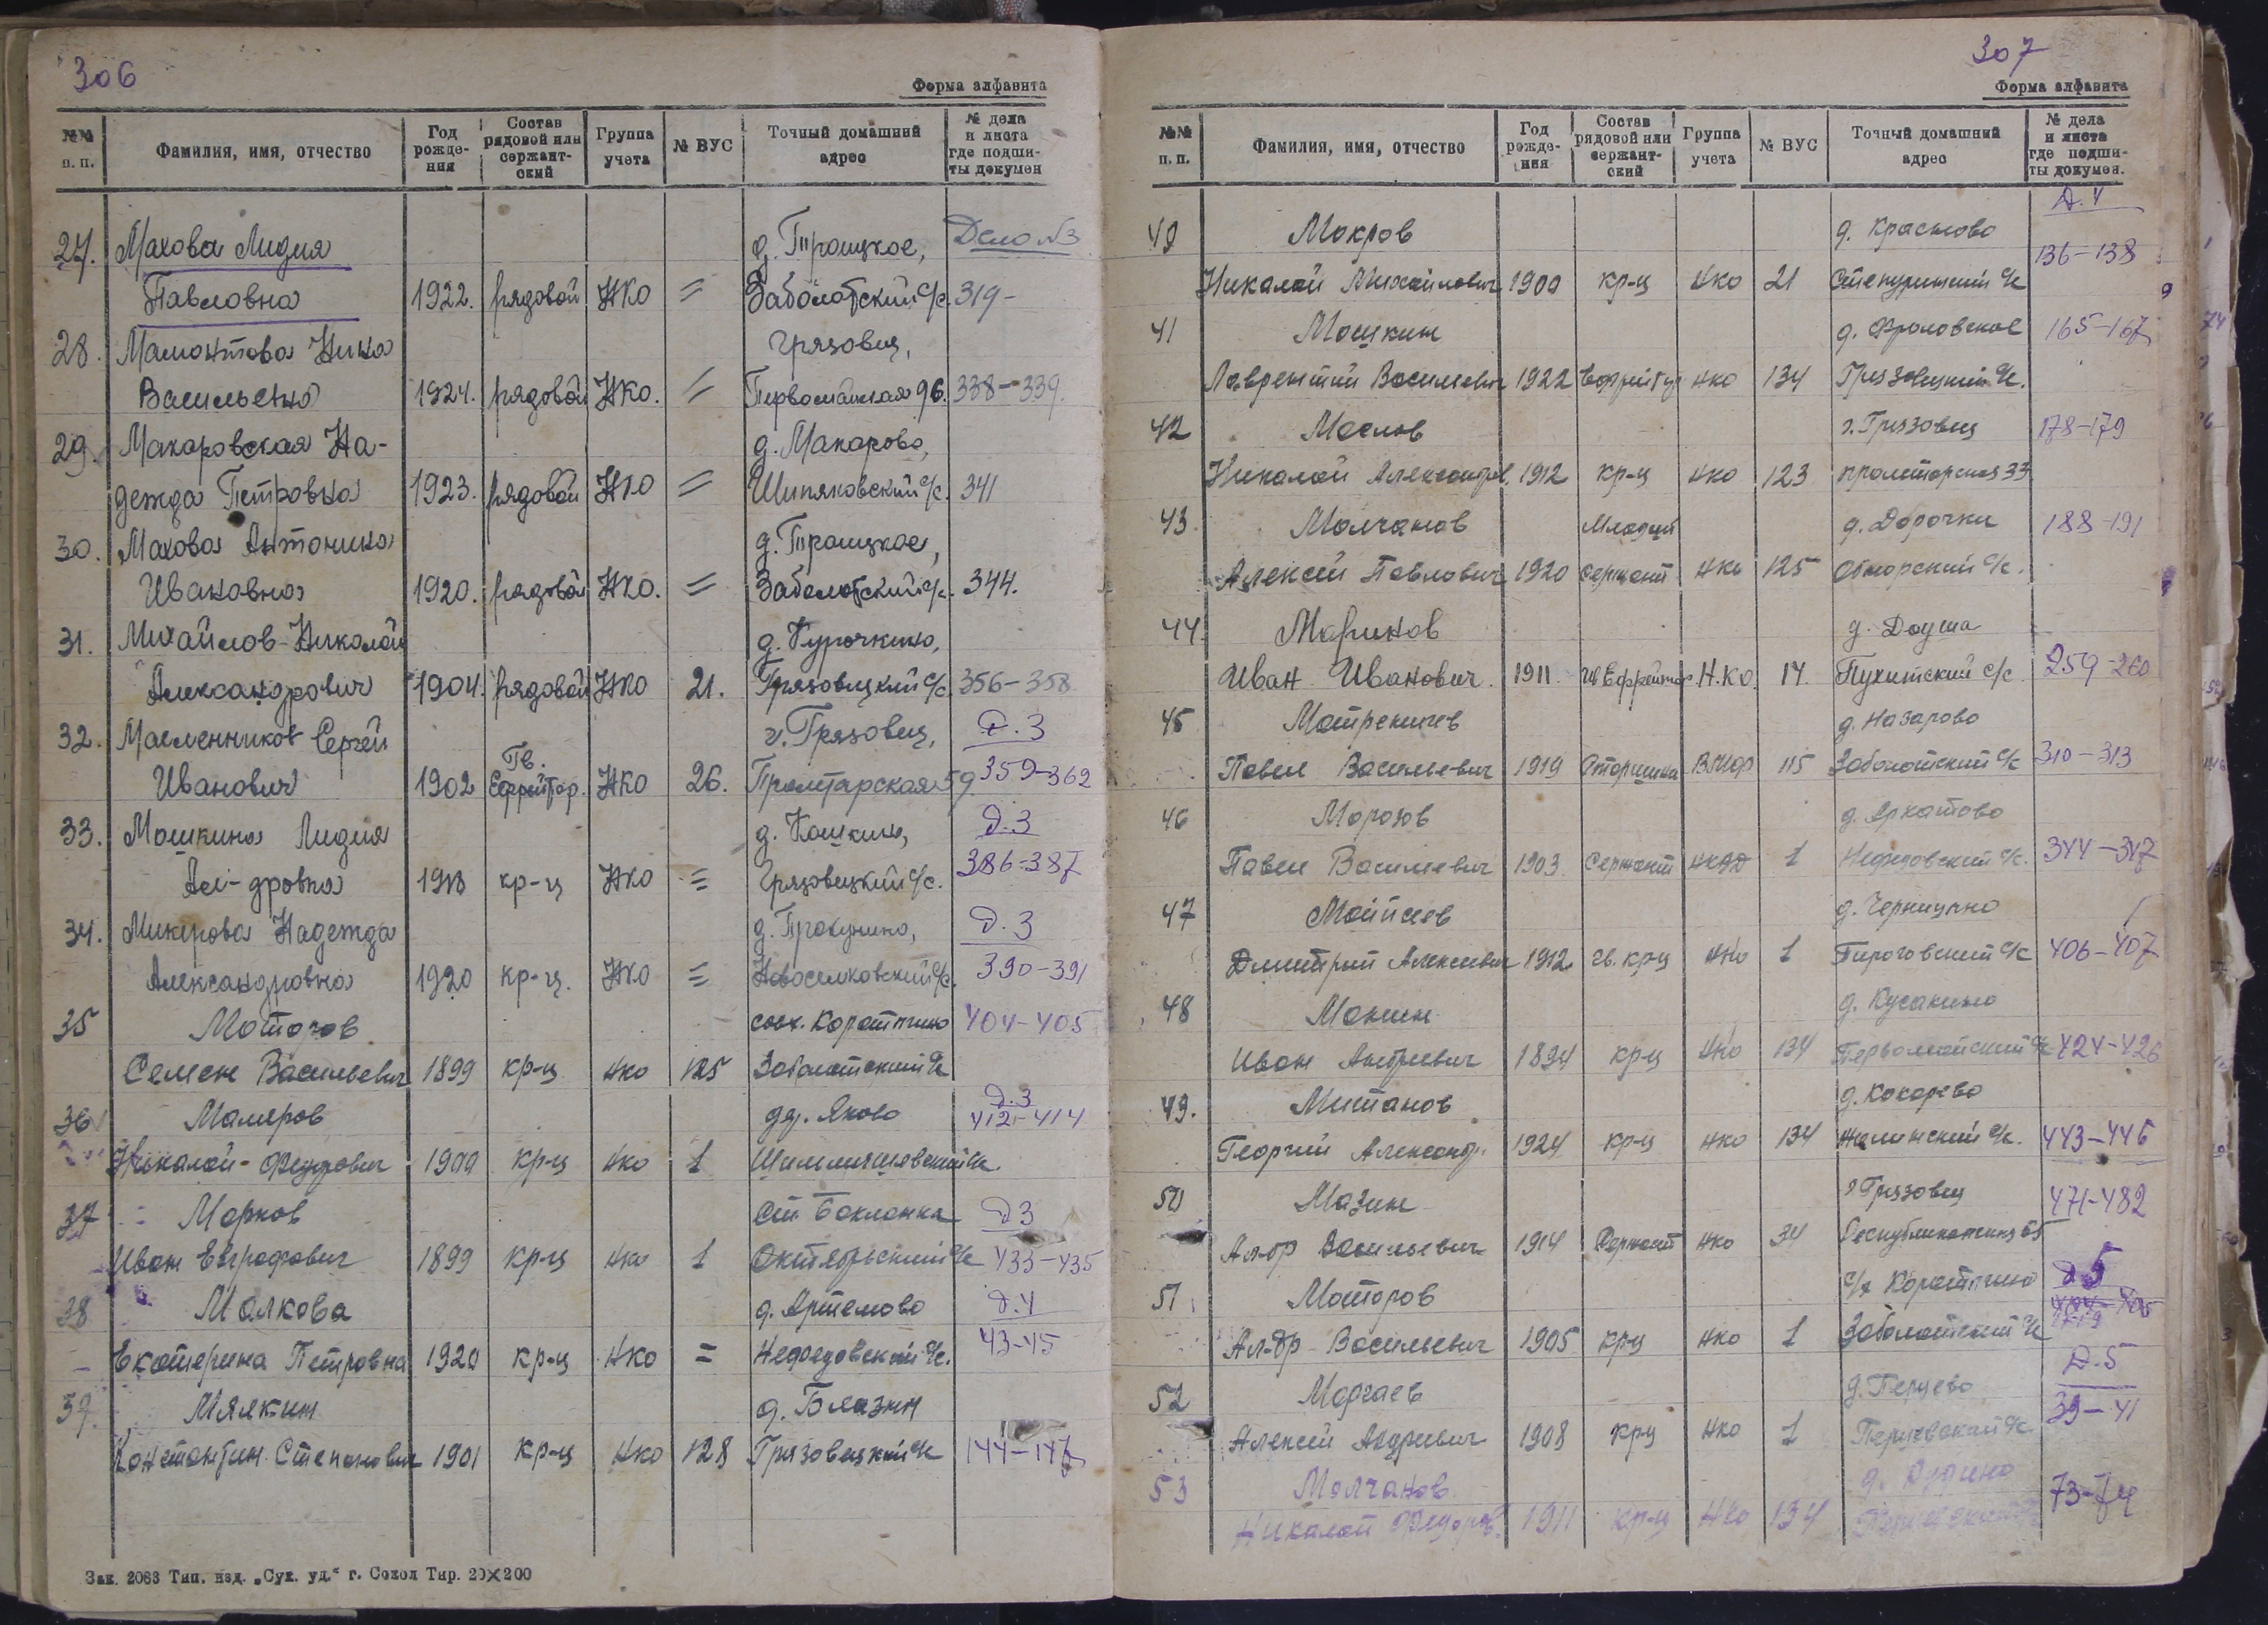 306
Форма алфавита
№№ п. п. Фамилия, имя, отчество Год рожде-ния Состав рядовой или сержант-ский Группа учета № ВУС Точный домашний адрес № дела и листа где подши-ты докумен
27. Махова Лидия д. Троицкое, Дело №3
Павловна 1922. рядовой НКО = Заболотский с/с. 319-
28. Мамонтова Нина Грязовец,
Васильевна 1924. рядовой НКО. = Первомайская 96. 338-339.
29. Макаровская На- д. Макарово,
дежда Петровна 1923. рядовой НКО = Шипяковский с/с. 341
30. Махова Антонина д. Троицкое,
Ивановна 1920. рядовой НКО. = Заболотский с/с. 344.
31. Михайлов Николай д. Курочкино,
Александрович 1904. рядовой НКО 21. Грязовецкий с/с 356-358
32. Масленников Сергей г. Грязовец, Д.3
Иванович 1902 Гв. Ефрейтор. НКО 26. Пролетарская 59. 359-362
33. Мошкина Лидия д. Кошкино, Д.3
Ал-дровна кр-ц НКО = Грязовецкий с/с. 386-387
34. Микерова Надежда Д.3
Александровна 1920 кр-ц. НКО = Новоселковский с/с. 390-391
35 Моторов совх. Коротыгино 404-405
Семен Васильевич 1899 кр-ц НКО 125 Заболотский с/с
36 Маляров др. Яково Д.3 412-414
Николай Федорович 1900 кр-ц НКО 1
37 Марков Ст Бакланка Д3
Иван Евграфович 1899 кр-ц НКО 1 Октябрьский с/с 433-435
38 Малкова д. Артемово Д.4
Екатерина Петровна 1920 кр-ц НКО = Нефедовский с/с. 43-45
39. Мялкин
Константин Степанович 1901 кр-ц НКО 128 Грязовецкий с/с 144-147
Зак. 2083 Тип. изд. „Сух. уд.“ г. Сокол Тир. 20×200
307
Форма алфавита
№№ п. п. Фамилия, имя, отчество Год рожде-ния Состав рядовой или сержант-ский Группа учета № ВУС Точный домашний адрес № дела и листа где подши-ты докумен.
Д.4
40 Мокров д. Красново 136-138
Николай Михайлович 1900 кр-ц НКО 21 Степуринский с/с
41 Мошкин д. Фроловское 165-167
Лаврентий Васильевич 1922 Ефрейтор НКО 134 Грязовецкий с/с.
42 Маслов г. Грязовец 178-179
Николай Александр. 1912 кр-ц НКО 123 Пролетарская 33
43 Молчанов Младший д. Дорочки 188-191
Алексей Павлович 1920 сержант НКО 125 Обнорский с/с.
44 Маринов
Иван Иванович. 1911 Гв Ефрейтор Н.КО. 14 Пухитский с/с 259-260
45 Матреничев д. Назарово
Павел Васильевич 1919 Старшина ВМФ 115 Заболотский с/с 310-313
46 Морозов
Павел Васильевич 1903 Сержант НКВД 1 Нефедовский с/с. 344-347
47 Мойисев
Дмитрий Алексеевич 1912 гв. кр-ц НКО 1 Пироговский с/с 406-407
48 Монин д. Кусакино
Иван Андреевич 1894 кр-ц НКО 134 Первомайский с/с 424-426
49. Митанов д. Кокорево
Георгий Александр. 1924 кр-ц НКО 134 443-446
50 Мазин г. Грязовец 471-482
Ал-др Васильевич 1914 Сержант НКО 34
51. Моторов с/х Коротыгино Д5
Ал-др Васильевич 1905 кр-ц НКО 1 Заболотский с/с
52 д. Перцево Д.5
Алексей Андреевич 1908 кр-ц НКО 1 Перцевский с/с 39-41
53 Молчанов 73-74
Николай Федоров. 1911 кр-ц НКО 134